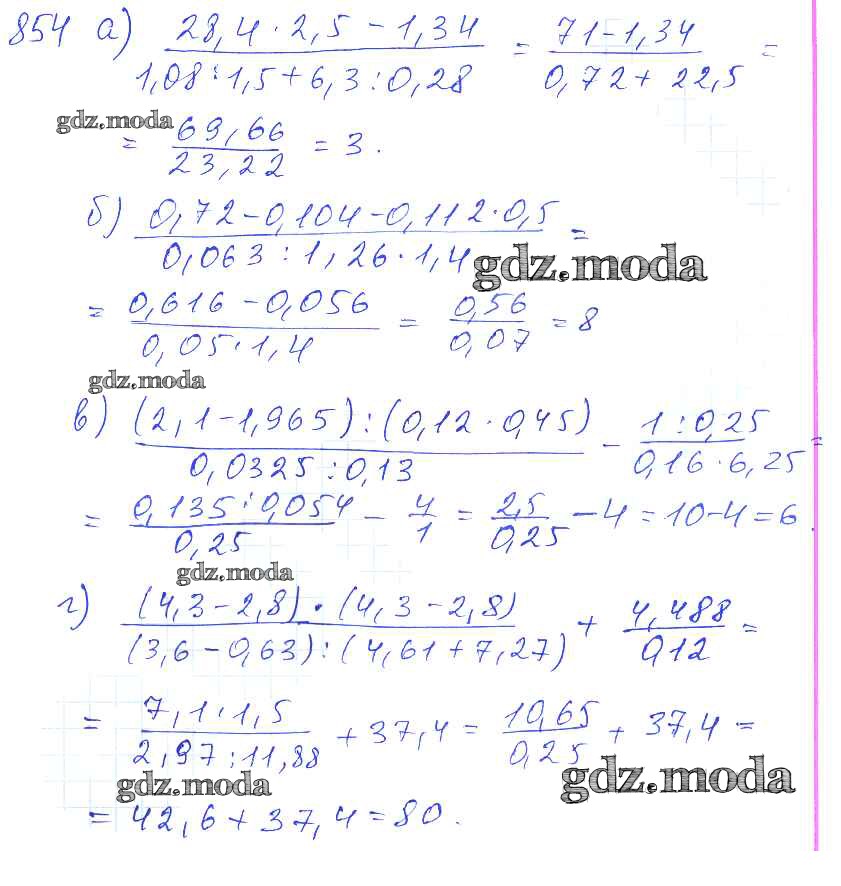 854 а) (28,4 · 2,5 - 1,34)/(1,08 : 1,5 + 6,3 : 0,28) = (71 - 1,34)/(0,72 + 22,5) =
gdz.moda
= 69,66/23,22 = 3.
б) (0,72 - 0,104 - 0,112 · 0,5)/(0,063 : 1,26 · 1,4) =
gdz.moda
= (0,616 - 0,056)/(0,05 · 1,4) = 0,56/0,07 = 8
gdz.moda
в) ((2,1 - 1,965) : (0,12 · 0,45))/(0,0325 : 0,13) - (1 : 0,25)/(0,16 · 6,25) =
= (0,135 : 0,054)/0,25 - 4/1 = 2,5/0,25 - 4 = 10 - 4 = 6.
gdz.moda
г) ((4,3 - 2,8) · (4,3 - 2,8))/((3,6 - 0,63) : (4,61 + 7,27)) + 4,488/0,12 =
= (7,1 · 1,5)/(2,97 : 11,88) + 37,4 = 10,65/0,25 + 37,4 =
gdz.moda
gdz.moda
= 42,6 + 37,4 = 80.